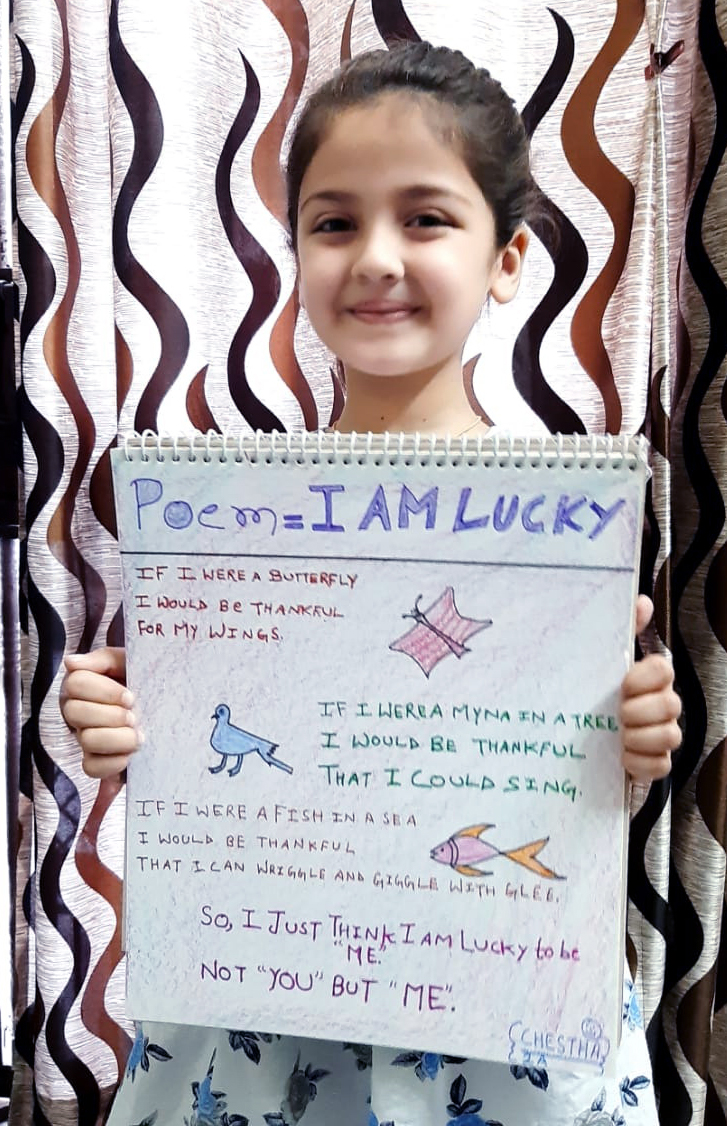 Poem = I AM LUCKY
IF I WERE A BUTTERFLY
I WOULD BE THANKFUL
FOR MY WINGS.
IF I WERE A MYNA IN A TREE
I WOULD BE THANKFUL
THAT I COULD SING.
IF I WERE A FISH IN A SEA
I WOULD BE THANKFUL
THAT I CAN WRIGGLE AND GIGGLE WITH GLEE.
SO, I JUST THINK I AM LUCKY to be
"ME."
NOT "YOU" BUT "ME".
CHESTHA